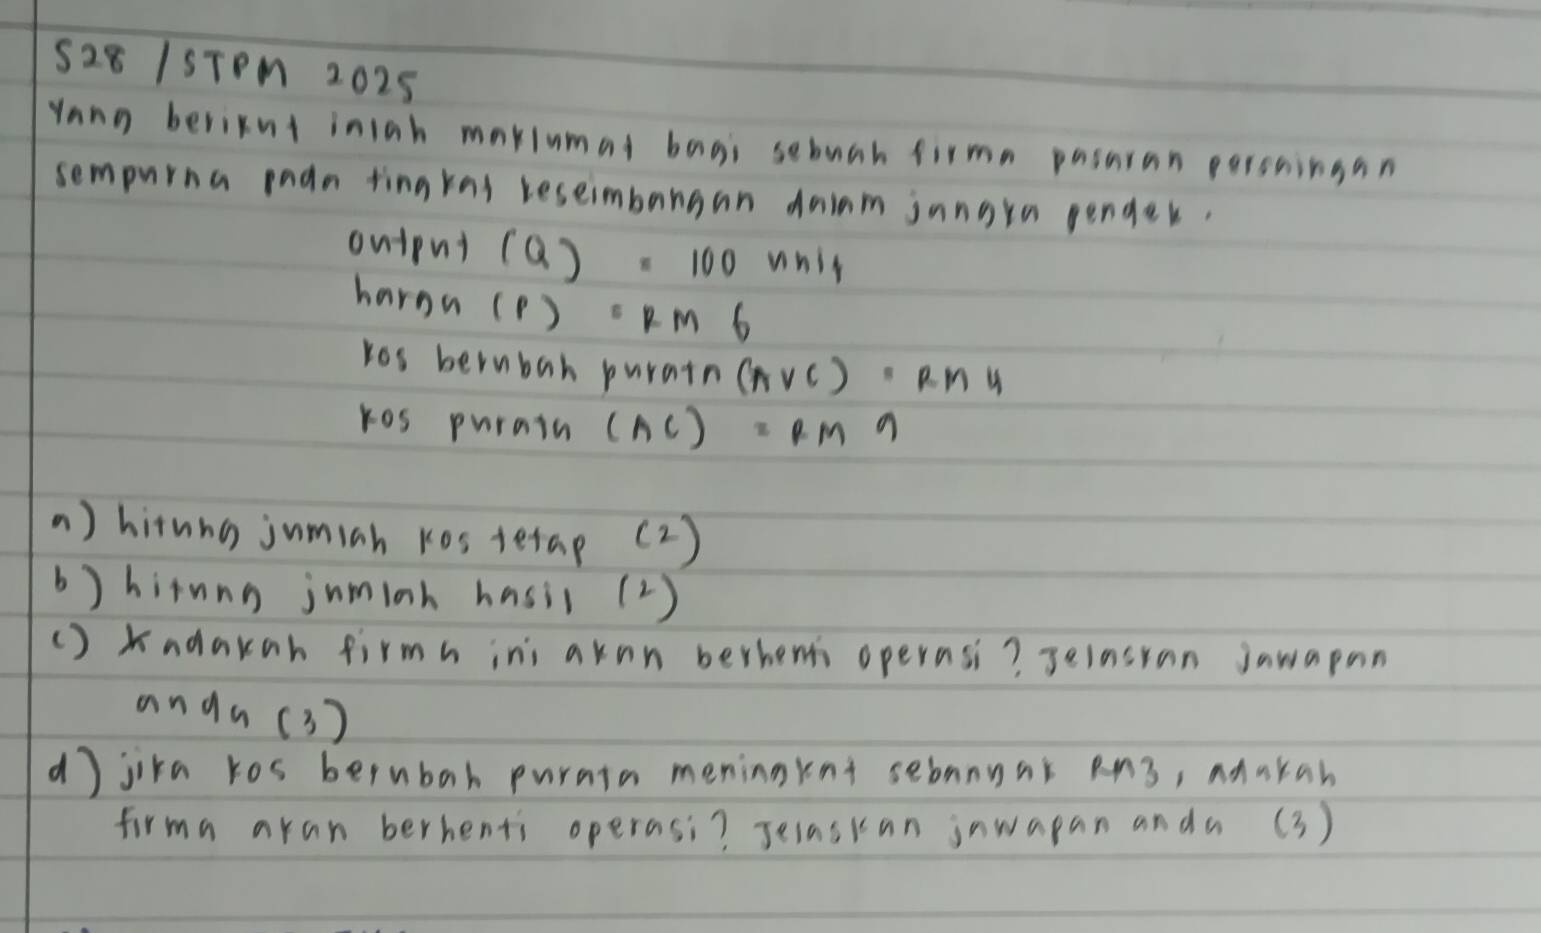 S28 / STPM 2025
Yang berikut ialah maklumat bagi sebuah firma pasaran persaingan
sempurna pada tingkat keseimbangan dalam jangka pendek.
output (Q) = 100 unit
harga (P) = RM 6
kos berubah purata (AVC) = RM 4
kos purata (AC) = RM 9
a) hitung jumlah kos tetap (2)
b) hitung jumlah hasil (2)
c) Adakah firma ini akan berhenti operasi? Jelaskan jawapan
anda (3)
d) jika kos berubah purata meningkat sebanyak RM3, adakah
firma akan berhenti operasi? Jelaskan jawapan anda (3)